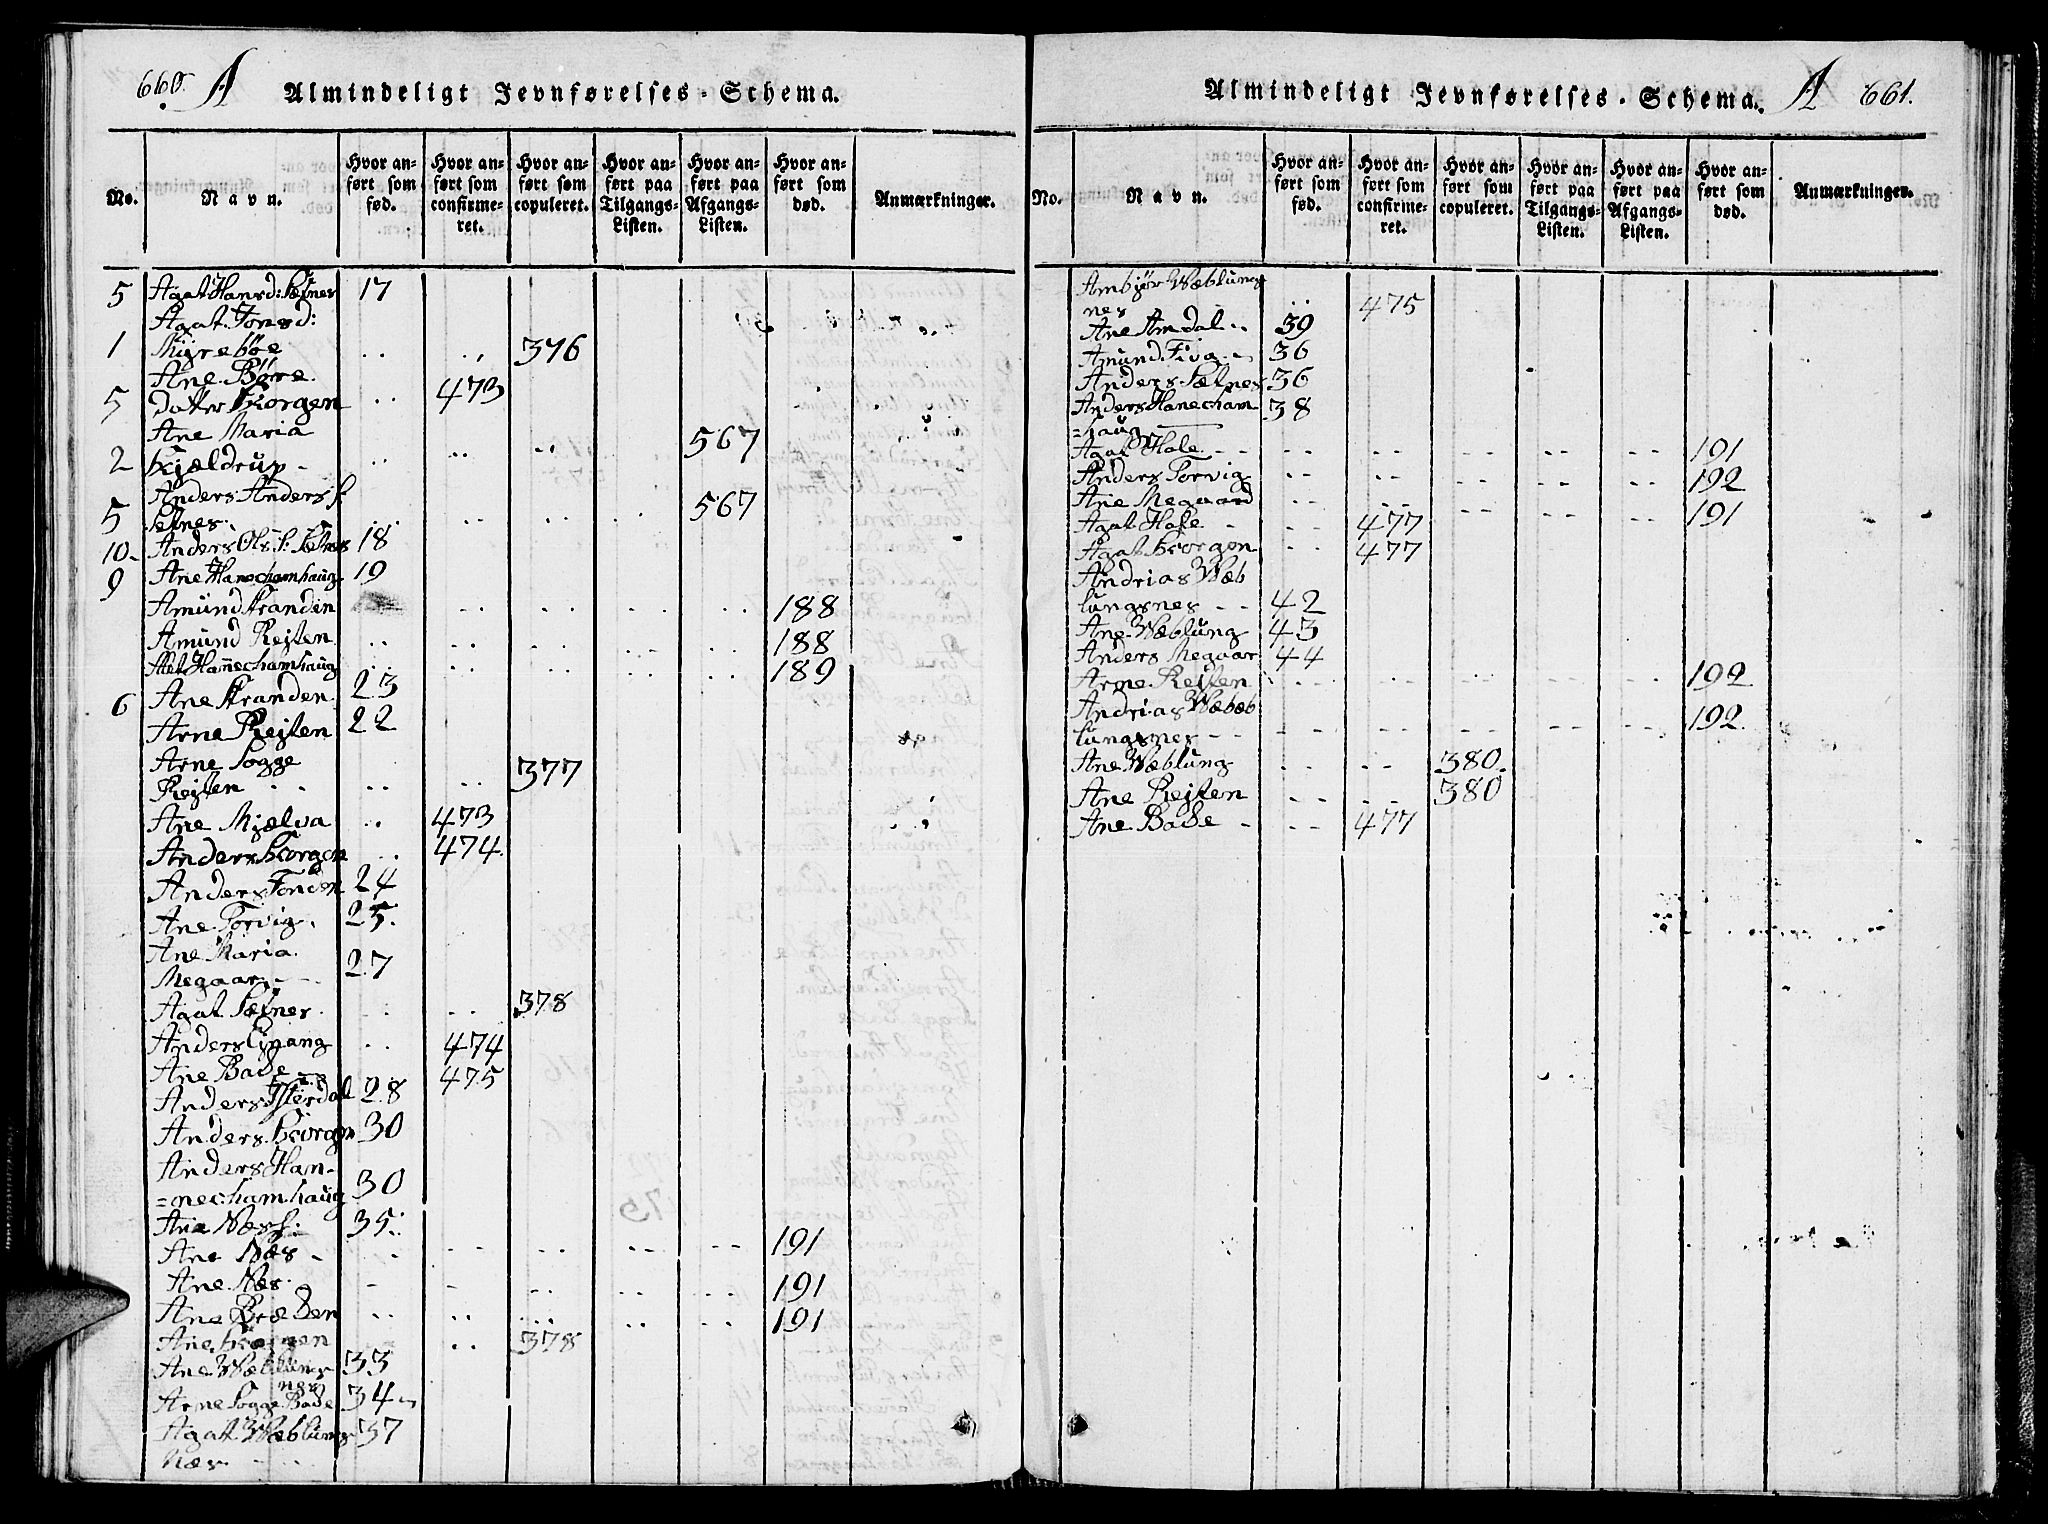 660. A Almindeligt Jevnførelses-Schema.
No. Navn. Hvor anført som fød. Hvor anført som confirmeret. Hvor anført som copuleret. Hvor anført paa Tilgangs-Listen. Hvor anført paa Afgangs-Listen. Hvor anført som død. Anmærkninger.
5 Agat Hansd: Sætnes 17
Agat Jonsd:
1 Myrebøe .. .. 376
Ane Børe
5 datter Korgen .. 473
Ane Maria
2 Kjældrup - .. .. .. 567
Anders Anders S:
5 Setnes. .. .. .. .. 567
10- Anders Ols S: Sætnes 18
9 Ane Hanechamhaug 19
Amund Stranden .. .. .. .. 188
Amund Rejten .. .. .. .. .. 188
Hannechamhaug .. .. .. .. .. 189
6 Ane Stranden 23
Arne Rejten 22
Arne Sogge
Rejten .. .. .. 377
Ane Mjelva .. 473
Anders Korgen .. 474.
Anders Tonden 24
Ane Torvig. 25.
Ane Maria
Megaar - - 27
Agat Sætnes .. .. 378
Anders .. 474
Ane Bade - 475
Anders Isterdal 28
Anders Korgen 30
Anders Han-
=nechamhaug 30
Ane Næss: 35:
Ane Næs - .. -- -- -- -- 191
Ane Næs. - - .. .. .. 191
Ane Bræden .. .. .. .. .. 191
Ane Korgen .. 378
Ane Wæblungs
nes 33
Arne Sogge Bade 34
Agat Wæblungs 37
Næs - ..
Almindeligt Jevnførelses-Schema. A 661.
No. Navn. Hvor anført som fød. Hvor anført som confirmeret. Hvor anført som copuleret. Hvor anført paa Tilgangs-Listen. Hvor anført paa Afgangs-Listen. Hvor anført som død. Anmærkninger.
Ambjør Wæblungs
nes .. 475
Ane Amdal .. 39
Amund Fiva - 36
Anders Sætnes 36
Anders Hanecham 38
=haug
Agat Hole - - -- -- -- -- -- 191
Anders Torvig -- -- -- -- 192
Ane Megaard -- -- -- -- -- 191
Agat Hole - -- 477
Agat Korgen -- 477
Andrias Wæb
lungsnes - - 42
Ane Wæblung 43
Anders Megaar 44
Arne Rejten -- -- -- -- -- 192
Andrias Wæbæb
lungsnes - - - -- -- -- -- 192.
Ane Wæblung -- -- 380.
Ane Rejten -- -- 380
Ane Bade - -- 477